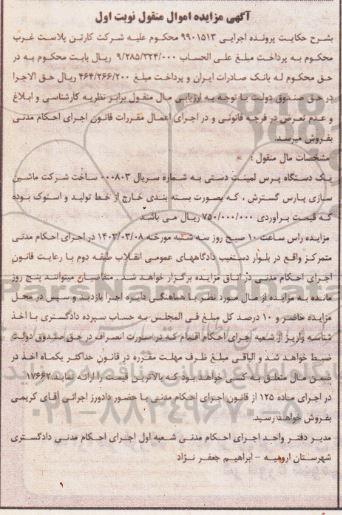 آگهی مزایده اموال منقول نوبت اول
بشرح حکایت پرونده اجرایی ۹۹۰۱۵۱۳ محکوم علیه شرکت کارتن پلاست غرب
محکوم به پرداخت مبلغ علی الحساب ۹/۲۸۵/۳۲۴/۰۰۰ ریال بابت محکوم به در
حق محکوم له بانک صادرات ایران و پرداخت مبلغ ۴۶۴/۲۶۶/۲۰۰ ریال حق الاجرا
در حق صندوق دولت با توجه به ارزیابی مال منقول برابر نظریه کارشناسی و ابلاغ
و عدم تعرض در فرجه قانونی و در اجرای اعمال مقررات قانون اجرای احکام مدنی
بفروش میرسد.
مشخصات مال منقول :
یک دستگاه پرس لمینت دستی به شماره سریال ۰۰۰۸۰۳ ساخت شرکت ماشین
سازی پارس گسترش ، که بصورت بسته بندی خارج از خط تولید و استوک بوده
که قیمت برآوردی ۷۵۰/۰۰۰/۰۰۰ ریال می باشد
مزایده راس ساعت ۱۰ صبح روز سه شنبه مورخه ۱۴۰۳/۰۳/۰۸ در اجرای احکام مدنی
متمرکز واقع در بلوار دستغیب دادگاههای عمومی انقلاب طبقه دوم با رعایت قانون
اجرای احکام مدنی در اتاق مزایده برگزار خواهد شد. متقاضیان میتوانند پنج روز
مانده به مزایده از مال مورد نظر با هماهنگی دایره اجرا بازدید و سپس در محل
مزایده حاضر و ۱۰ درصد کل مبلغ فی المجلس به حساب سپرده دادگستری با اخذ
شناسه واریز از شعبه اجرای احکام اقدام که در صورت انصراف در حق صندوق دولت
ضبط خواهد شد و الباقی مبلغ ظرف مهلت مقرره در قانون حداکثر یکماه اخذ در
ضمن مال متعلق به کسی خواهد بود که بالاترین قیمت را ارائه نماید.۱۷۶۶۲
در اجرای ماده ۱۲۵ از قانون اجرای احکام مدنی با حضور دادورز اجرائی آقای کریمی
بفروش خواهد رسید.
مدیر دفتر واحد اجرای احکام مدنی شعبه اول اجرای احکام مدنی دادگستری
شهرستان ارومیه – ابراهیم جعفر نژاد